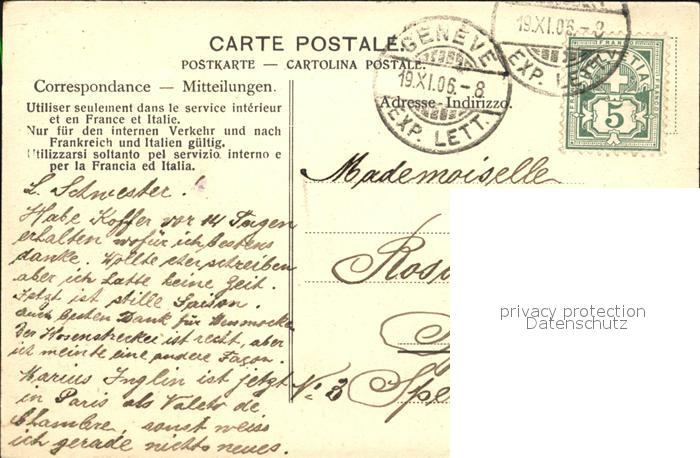 CARTE POSTALE.
POSTKARTE — CARTOLINA POSTALE.
Correspondance — Mitteilungen.
Utiliser seulement dans le service intérieur
et en France et Italie.
Nur für den internen Verkehr und nach
Frankreich und Italien gültig.
Utilizzarsi soltanto pel servizio interno e
per la Francia ed Italia.
L. Schwester!
Habe Koffer vor 14 Tagen
erhalten wofür ich bestens
danke. Wollte eher schreiben
aber ich hatte keine Zeit.
Jetzt ist stille Saison.
auch besten Dank für
Der Hosenstrecker ist recht, aber
ich meinte eine andere Façon.
Marius Inglin ist jetzt
in Paris als Valet de
Chambre, sonst weiss
ich gerade nichts neues.
GENÈVE
19.XI.06.-8
EXP. LETT.
19.XI.06.-8
EXP. LETT.
Adresse - Indirizzo.
FRANCO
HELVETIA
5
Mademoiselle
Ros
N° 3 Spe
privacy protection
Datenschutz